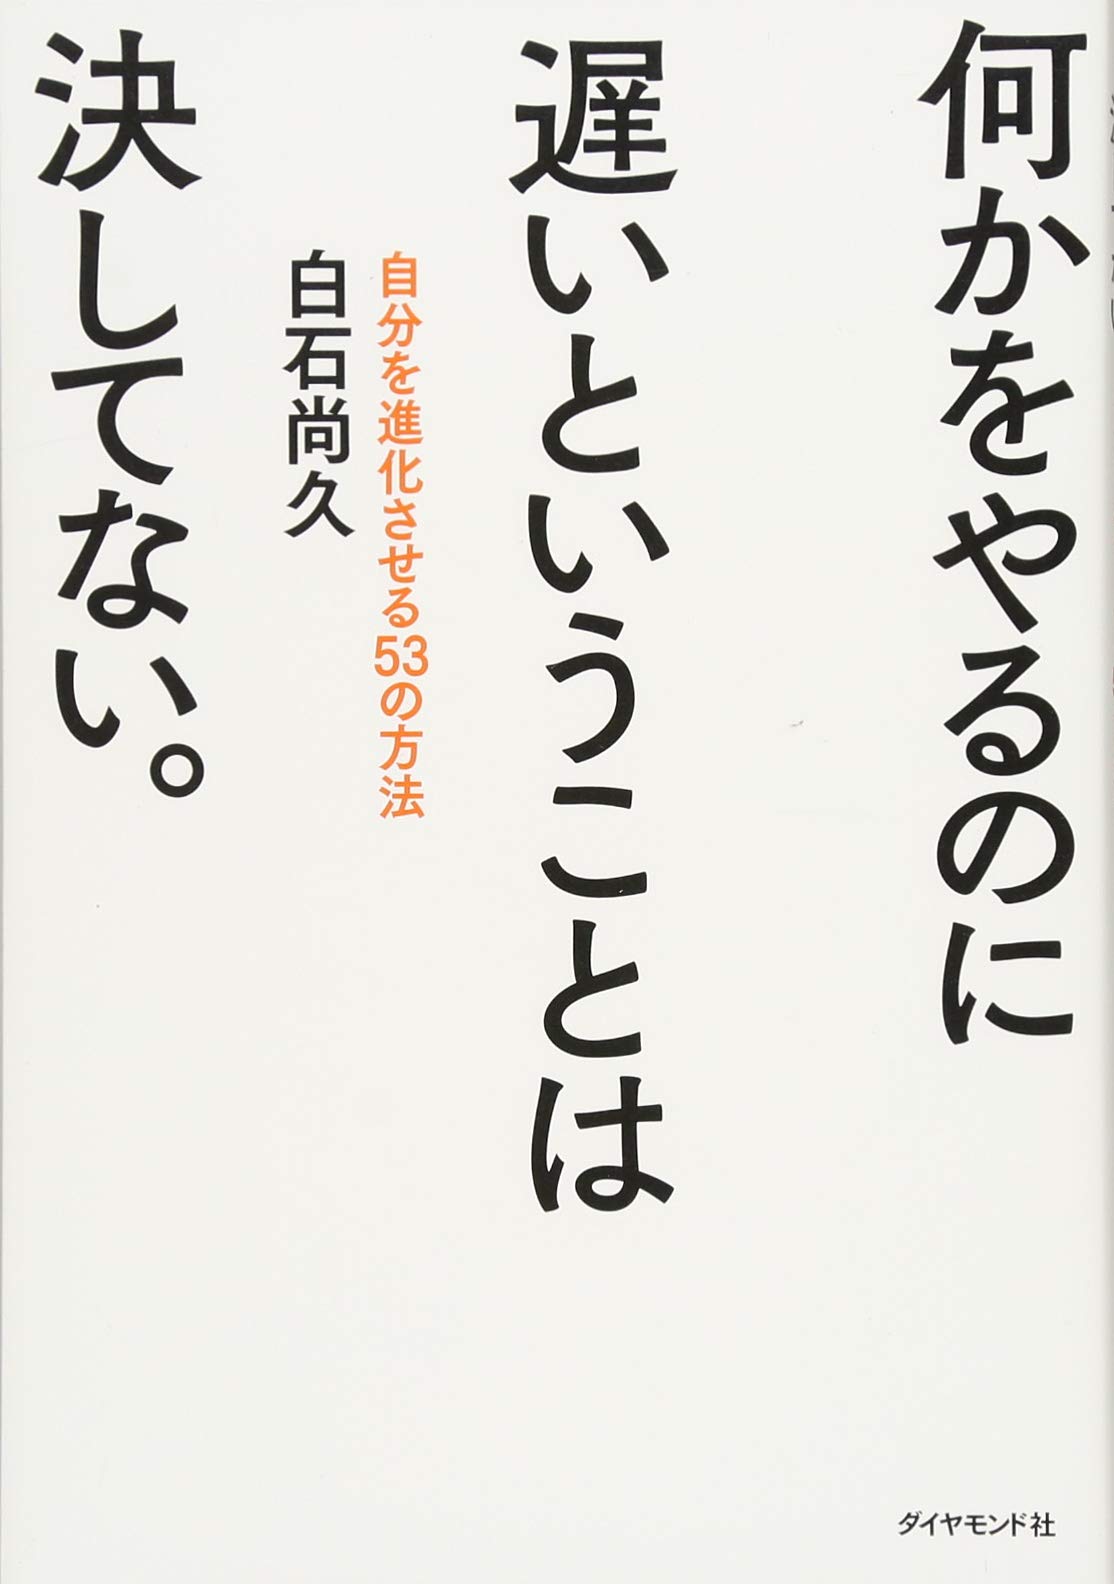 何かをやるのに
遅いということは
自分を進化させる53の方法
白石尚久
決してない。
ダイヤモンド社